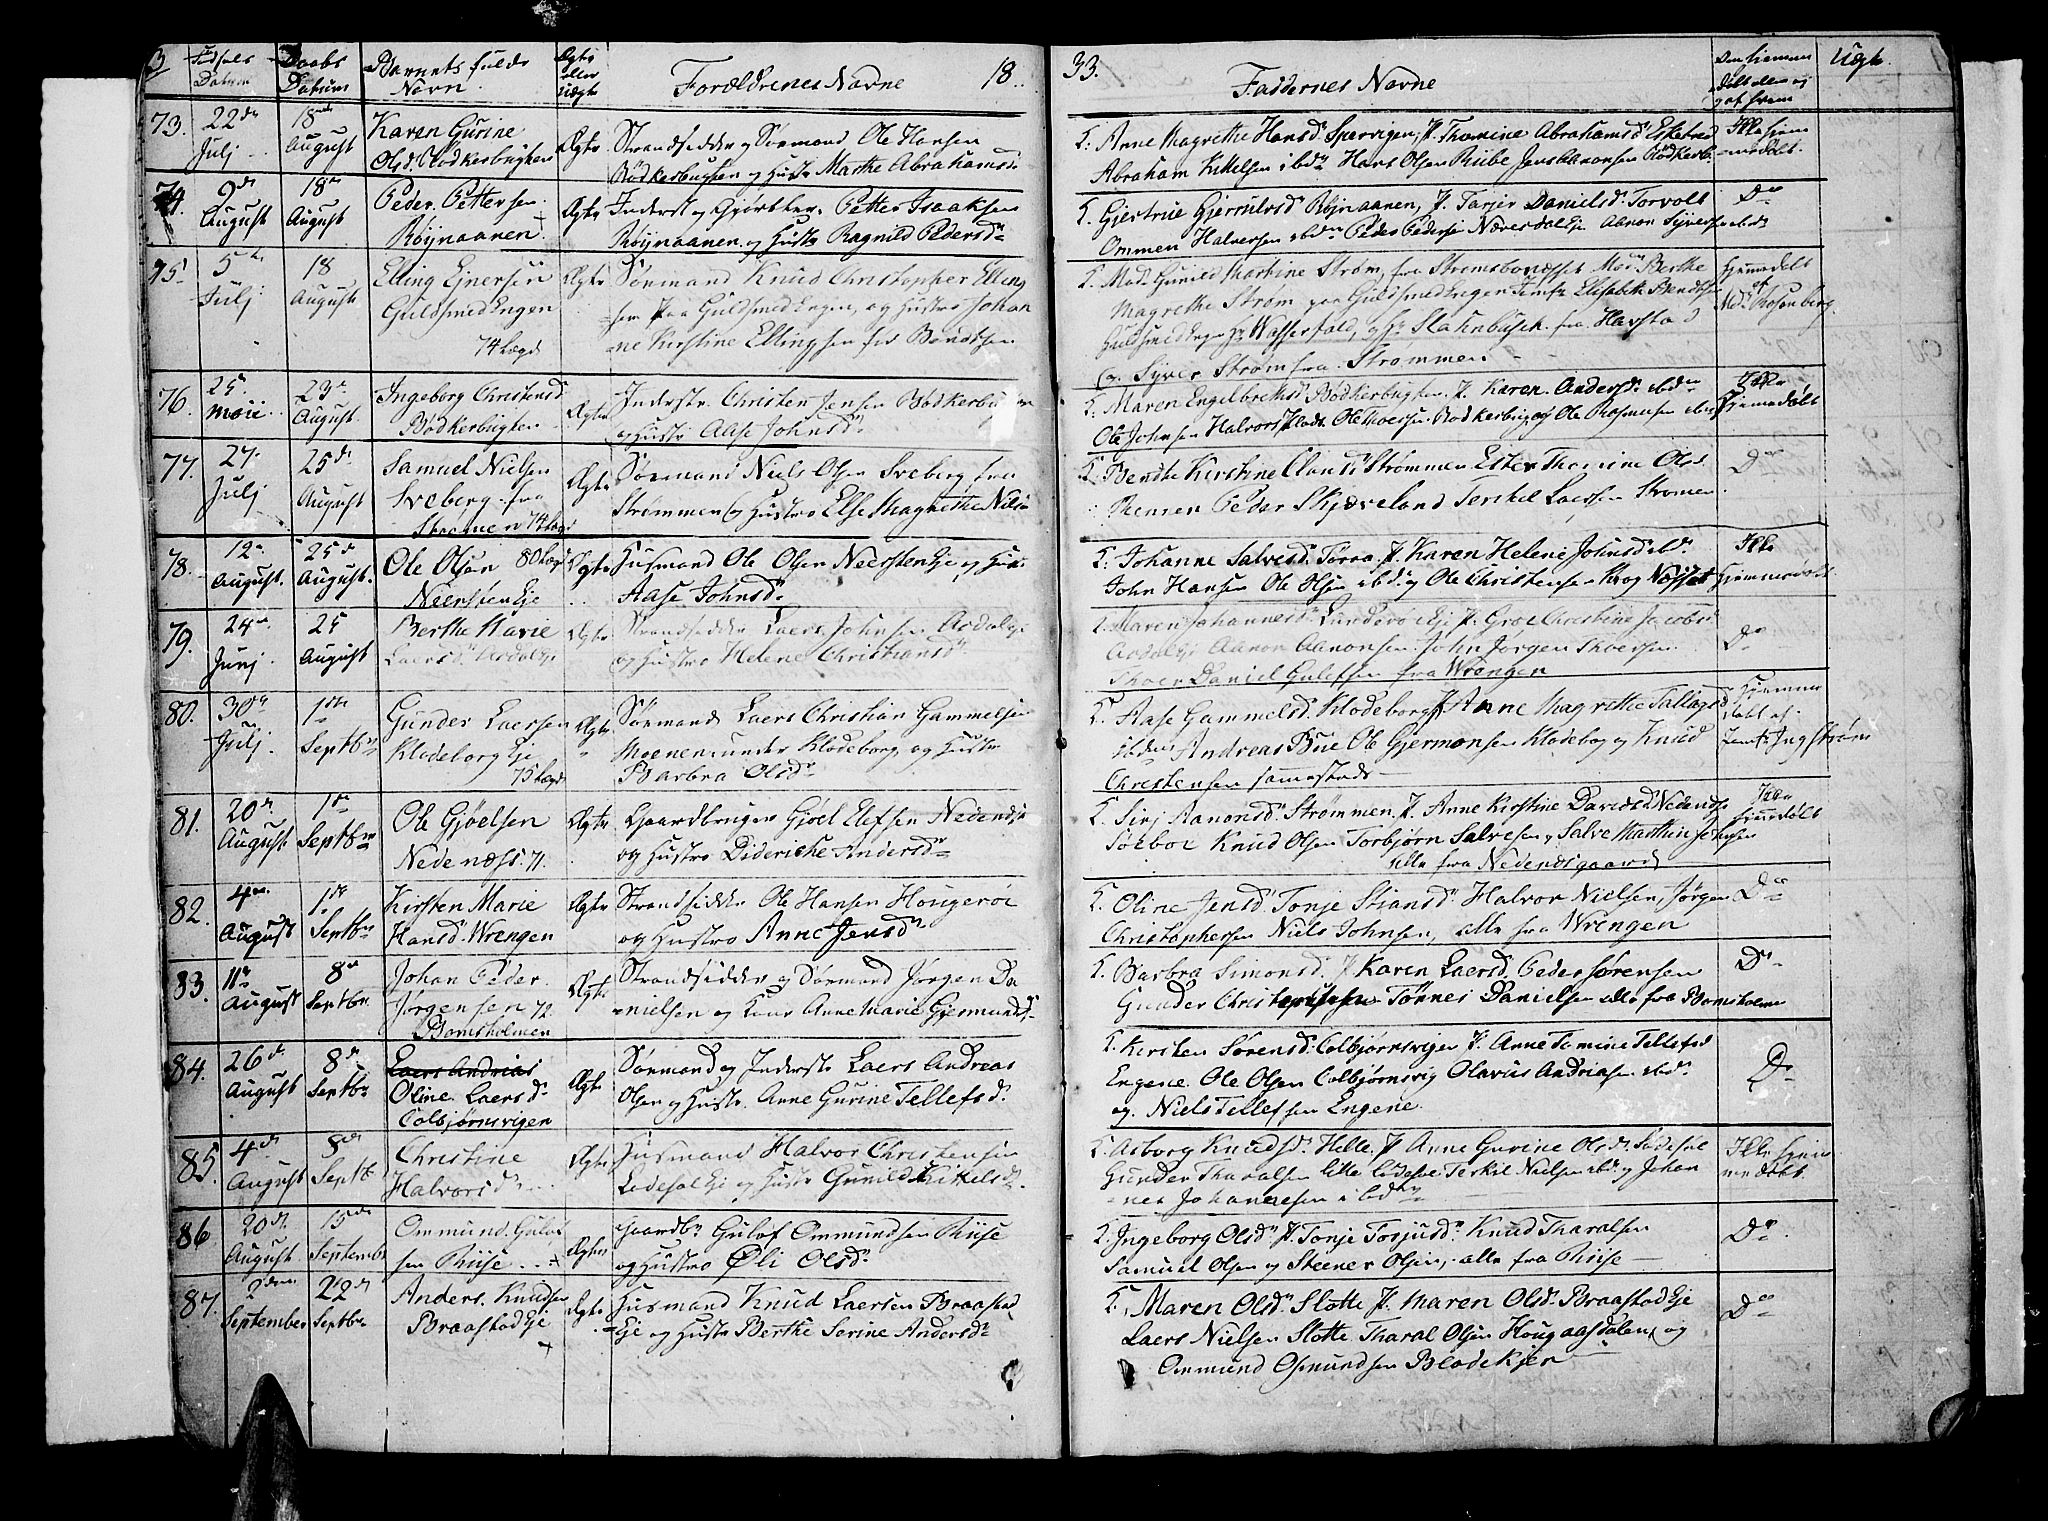 Fødsels Datum
Daabs Datum
Barnets fulde Navn
Ægte eller Uægte
Forældrenes Navne
18
33.
Faddernes Navne
Uægte
73. 22de Julj
18de August
Karen Gurine Olsd. Bödkerbugten
Ægte
Strandsidder og Sørmand Ole Hansen
Bödkerbugten og Hustr Marthe Abrahamsd.
Anne Magrethe Hansd. Spærvigen, P. Thomine Abrahamsd.
Abraham Kittelsen ibdn Hans Olsen Bube Jens Aaronsen Bödkerb.
Ikke hjemmedøbt
74. 9de August
18de August
Peder Pettersen Röynaanen
Ægte
Inderst og Gjørtler Petter Isaaksen
Röynaanen og Hustr Ragnild Pedersd.
Gjertrue Gjerrulvsd. Röjnaanen, P. Tarjer Danielsd. Torvolt
Ommen Halversen ibdn Peder Pedersen Næversdalseje Aanon Syversen ibd.
Do
75 5te Julj
18 August
Elling Ejnersen Guldsmed Engen
74 Lægd
Ægte
Sørmand Knud Christopher Elling
sen paa Guldsmed Engen, og Hustro Johan
ne Kirstine Ellingsen føs Bendtsen
Mad. Gunild Martine Strøm, fra Strømsbonæsset Mad. Berthe
Magrethe Strøm paa Guldsmed Engen Jomfr Elisabeth Bendtsen
Guldsmed Engen Hr Wasserfald, og Hr Stahnbusch fra Havsta
og Syver Strøm fra Strømmen
Hjemmedøbt af Md. Rosenberg.
76. 25 Maii
23de August
Ingeborg Christensd. Bödkerbugten
Ægte
Inderste Christen Jensen Bödkerbugten
og Hustr Aase Johnsd.
Maren Engelbrethsd. Bödkerbugten P. Karen Andersd. ibdn
Ole Johnsen Halvors Plads Ole Thorsen Bødkerbug. og Ole Rasmusen ibdn
Ikke Hjemmedøbt
77. 27. Julj
25de August
Samuel Nielsen Sveberg fra Strømen 74 Lægd
Ægte
Sørmand Niels Olsen Sveberg fra
Strømmen og Hustro Else Magrethe Niels
Bendte Kirstine Claudsd. Strømmen Ester Thomine Olsd.
Rennen Peder Skjæveland Terchel Laersen Strømen.
Do
78. 12. August.
25de August.
Ole Olsen 80 Lægd Neersten Eje
Ægte
Husmand Ole Olsen Neersten Eje og Hus.
Aase Johnsd.
Johanne Salvesd. Toraa, P. Karen Helene Johnsd. ibd.
John Hansen Ole Olsen ibd. og Ole Christensen Krog Næsset
Ikke Hjemmedøbt
79. 24de Junj
25 August
Berthe Marie Laersd. Asdal Eje
Ægte
Strandsidder Laers Johnsen Asdal Eje
og Hustro Helene Christiansd.
Maren Johannesd. Lunderöe Eje P. Groe Christine Jacobsd.
Asdal Eje Aanon Aanonsen John Jörgen Thoersen
Thoer Daniel Gulefsen fra Wrengen
Do
80. 30de Julj.
1ste Septbr
Gunder Laersen Klodeborg Eje 75 Lægd
Ægte
Sørmand Laers Christian Gammelsen
Moenen under Klodeborg og Hustro
Barbra Olsd.
Aase Gammelsd. Klodeborg P. Anne Magrethe Tallagsd.
ibdn Andreas Bue Ole Gjermonsen Klodebog og Knud
Christensen sammesteds
Hjemmedøbt af Jomfr Ingstrøm
81. 20de August
1ste Septbr
Ole Gjøelsen Nedenæss. 71.
Ægte
Gaardbruger Gjøel Elefsen Nedenæs
og Hustro Dideriche Andersd.
Sirj Aanonsd. Strømmen, P. Anne Kirstine Davidsd. Nedenæs
Söeboe Knud Olsen Torbjørn Salvesen, Salve Marthin Jensen
alle fra Nedenæsgaard
Ikke Hjemedöbt
82. 4de August
1ste Septbr
Kirsten Marie Hansd. Wrengen
Ægte
Strandsidder Ole Hansen Hougeröe
og Hustro Anne Jensd.
Oline Jensd. Tonje Stiansd. Halvor Nielsen, Jørgen
Christophersen Niels Johnsen, alle fra Wrengen
Do
83. 11te August
8de Septbr
Johan Peder Jörgensen 72 Bomsholmen
Ægte
Strandsidder og Sörmand Jörgen Da
nielsen og Kone Anne Marie Gjermundsd.
Barbra Simonsd. P. Karen Laersd. Peder Sørensen
Gunder Christophersen Tönnes Danielsen alle fra Bomsholmen
Do
84. 26de August
8de Septbr
Laers Andreas
Oline Laersd. Colbjørnsvigen
Ægte
Sørmand og Inderste Laers Andreas
Olsen og Hustr. Anne Gurine Tellefsd.
Kirsten Sørensd. Colbjørnsvigen P. Anne Tomine Tellefsd
Engene Ole Olsen Colbjørnsvig Olavus Andriasen ibd.
og Niels Tellefsen Engene.
Do
85. 4de August
8de Septbr
Christine Halvorsd.
Ægte
Husmand Halvor Christensen
Lødesøl Eje og Hustro Gunild Kittelsd.
Asborg Knudsd. Helle P. Anne Gurine Olsd. Lødesöl
Gunder Tharalsen lille Lødesøl Terkil Nielsen ibd. og Johan
nes Johannesen ibdn
Ikke hjemmedøbt.
86 20de August
15de Septembr
Ommund Gulof sen Riise
Ægte
Gaardbr Gulof Ommundsen Riise
og Hustro Øli Olsd.
Ingeborg Olsd. P. Tonje Tosjusd. Knud Tharalsen
Samuel Olsen og Steener Olsen, alle fra Riise
Do
87. 2den September
22de Septbr
Anders Knudsen Braastad Eje
Ægte
Husmand Knud Laersen Braastad
Eje og Hustr Berthe Serine Andersd.
Maren Olsd. Slotte P. Maren Olsd. Braastad Eje
Laers Nielsen Slotte Tharal Olsen Hougaasdalen, og
Ommund Osmundsen Blodekjer
Do